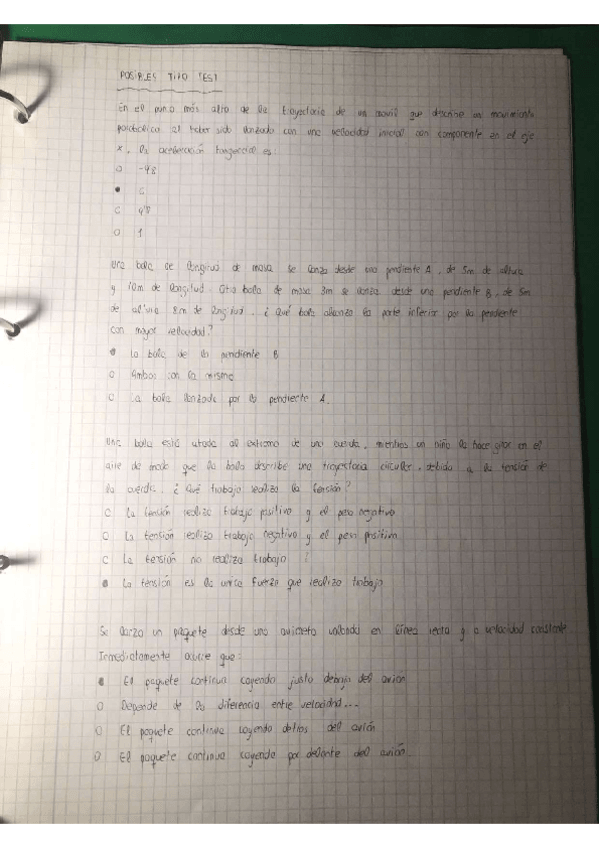 POSIBLES TIPO TEST
En el punto más alto de la trayectoria de un movil que describe un movimiento
parabolico al haber sido lanzado con una velocidad inicial con componente en el eje
x, la aceleración tangencial es:
O -9'8
● 0
O 9'8
O 1
Una bola de de masa se lanza desde una pendiente A, de 5m de altura
y 10m de longitud. Otra bola de masa 3m se lanza desde una pendiente B, de 5m
de altura 8m de longitud. ¿Qué bola alcanza la parte inferior por la pendiente
con mayor velocidad?
● La bola de la pendiente B
O Ambas con la misma
O La bola lanzada por la pendiente A.
Una bola está atada al extremo de una cuerda, mientras un niño la hace girar en el
aire de modo que la bola describe una trayectoria circular, debido a la tensión de
la cuerda. ¿Qué trabajo realiza la tensión?
O La tensión realiza trabajo positivo y el peso negativo
O La tensión realiza trabajo negativo y el peso positivo
O La tensión no realiza trabajo
● La tensión es la unica fuerza que realiza trabajo
Se lanza un paquete desde una avioneta volando en línea recta y a velocidad constante
Inmediatamente ocurre que:
● El paquete continua cayendo justo debajo del avión
O Depende de la diferencia entre velocidad...
O El paquete continua cayendo detras del avión
O El paquete continua cayendo por delante del avión